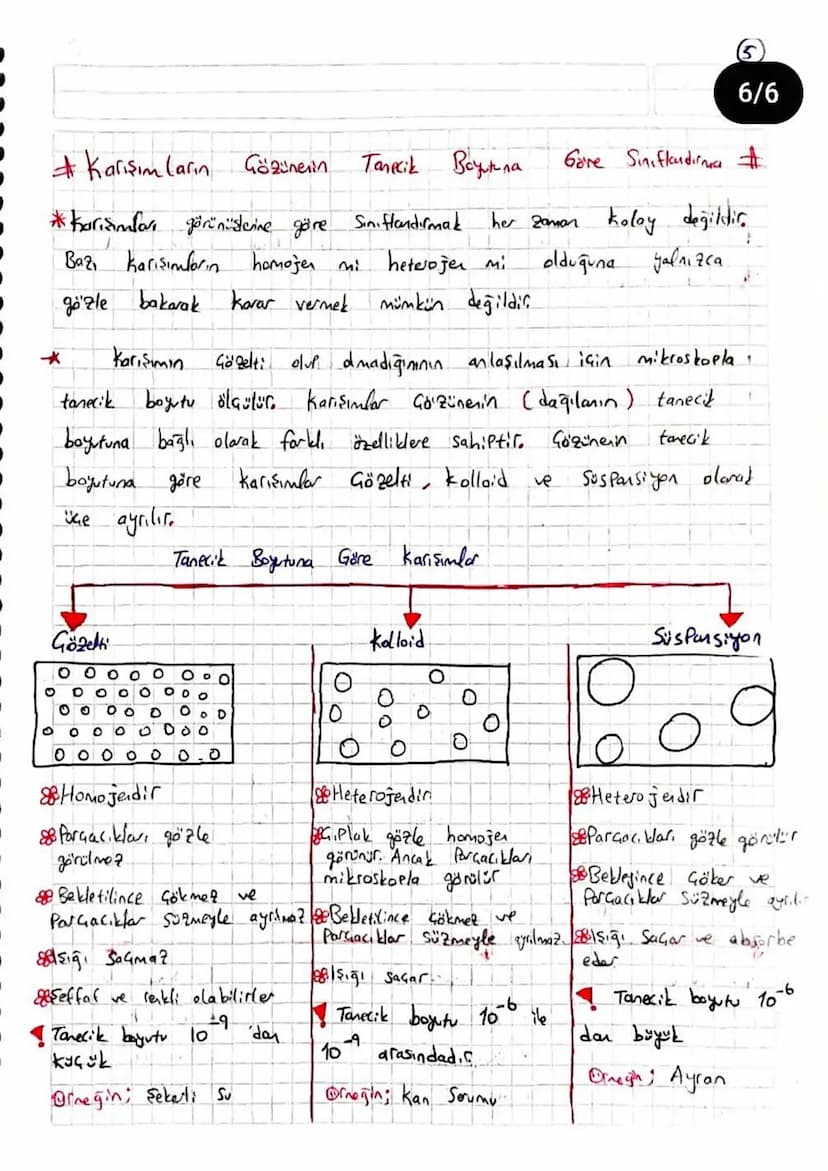 5
6/6
# Karışımların Çözünenin Tanecik Boyutuna Göre Sınıflandırma #
* Karışımları görünüşlerine göre sınıflandırmak her zaman kolay değildir.
Bazı karışımların homojen mi heterojen mi olduğuna yalnızca
gözle bakarak karar vermek mümkün değildir.
* Karışımın çözelti olup olmadığınının anlaşılması için mikroskopla
tanecik boyutu ölçülür. Karışımlar çözünenin (dağılanın) tanecik
boyutuna bağlı olarak farklı özelliklere sahiptir. Çözünenin tanecik
boyutuna göre karışımlar çözelti, kolloid ve süspansiyon olarak
üçe ayrılır.
Tanecik Boyutuna Göre Karışımlar
Çözelti
Homojendir
Parçacıkları gözle
görülmez
Bekletilince çökmez ve
Parçacıklar süzmeyle ayrılmaz
Işığı saçmaz
Şeffaf ve renkli olabilirler
! Tanecik boyutu 10⁻⁹ 'dan
küçük
Örneğin; Şekerli su
Kolloid
Heterojendir
Çıplak gözle homojen
görünür. Ancak Parçacıkları
mikroskopla görülür
Bekletilince çökmez ve
Parçacıklar süzmeyle ayrılmaz.
Işığı saçar.
! Tanecik boyutu 10⁻⁶ ile
10⁻⁹ arasındadır.
Örneğin; Kan Serumu
Süspansiyon
Heterojendir
Parçacıkları gözle görülür
Bekleyince çöker ve
Parçacıklar süzmeyle ayrılı
Işığı saçar ve absorbe
eder
! Tanecik boyutu 10⁻⁶
dan büyük
Örneğin; Ayran